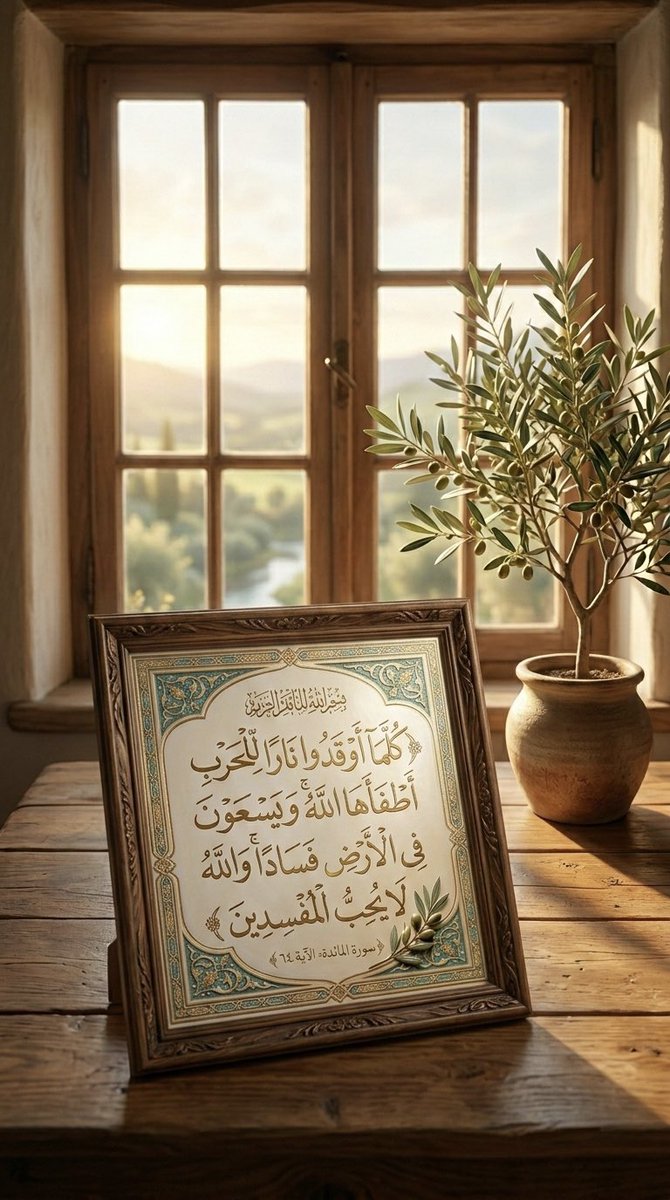 بسم الله
﴿كُلَّمَآ أَوْقَدُوا نَارًا لِّلْحَرْبِ
أَطْفَأَهَا اللَّهُ ۚ وَيَسْعَوْنَ
فِي الْأَرْضِ فَسَادًا ۚ وَاللَّهُ
لَا يُحِبُّ الْمُفْسِدِينَ ﴾
﴿سورة المائدة، الآية ٦٤﴾